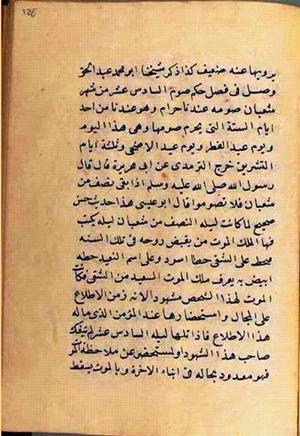 ١٢٥
يرويها عنه ضعيف كذا ذكر شيخنا ابو محمد عبد الحق
وصل في فصل حكم صوم السادس عشر من شهر
شعبان صومه عندنا حرام وهو عندنا من احد
ايام الستة التي يحرم صومها وهي هذا اليوم
ويوم عيد الفطر ويوم عيد الاضحى وثلثة ايام
التشريق خرج الترمذي عن ابي هريرة قال قال
رسول الله صلى الله عليه وسلم اذا بقي نصف من
شعبان فلا تصوموا قال ابو عيسى هذا حديث حسن
صحيح لما كانت ليلة النصف من شعبان ليلة يكتب
فيها الملك الموت من يقبض روحه في تلك السنه
فيخط على الشقي خطا اسود وعلى اسم السعيد خطه
ابيض به يعرف ملك الموت السعيد من الشقي فكان
الموت لهذا الشخص مشهودا لانه زمن الاطلاع
على الاجال واستحضارها عند المؤمن الذي ماله
هذا الاطلاع فاذا تلها ليلة السادس عشر لم تنفك
صاحب هذا الشهود او المستحضر عن ملاحظة الموت
فهو معدود بحاله في ابناء الاخرة وبالموت يسقط